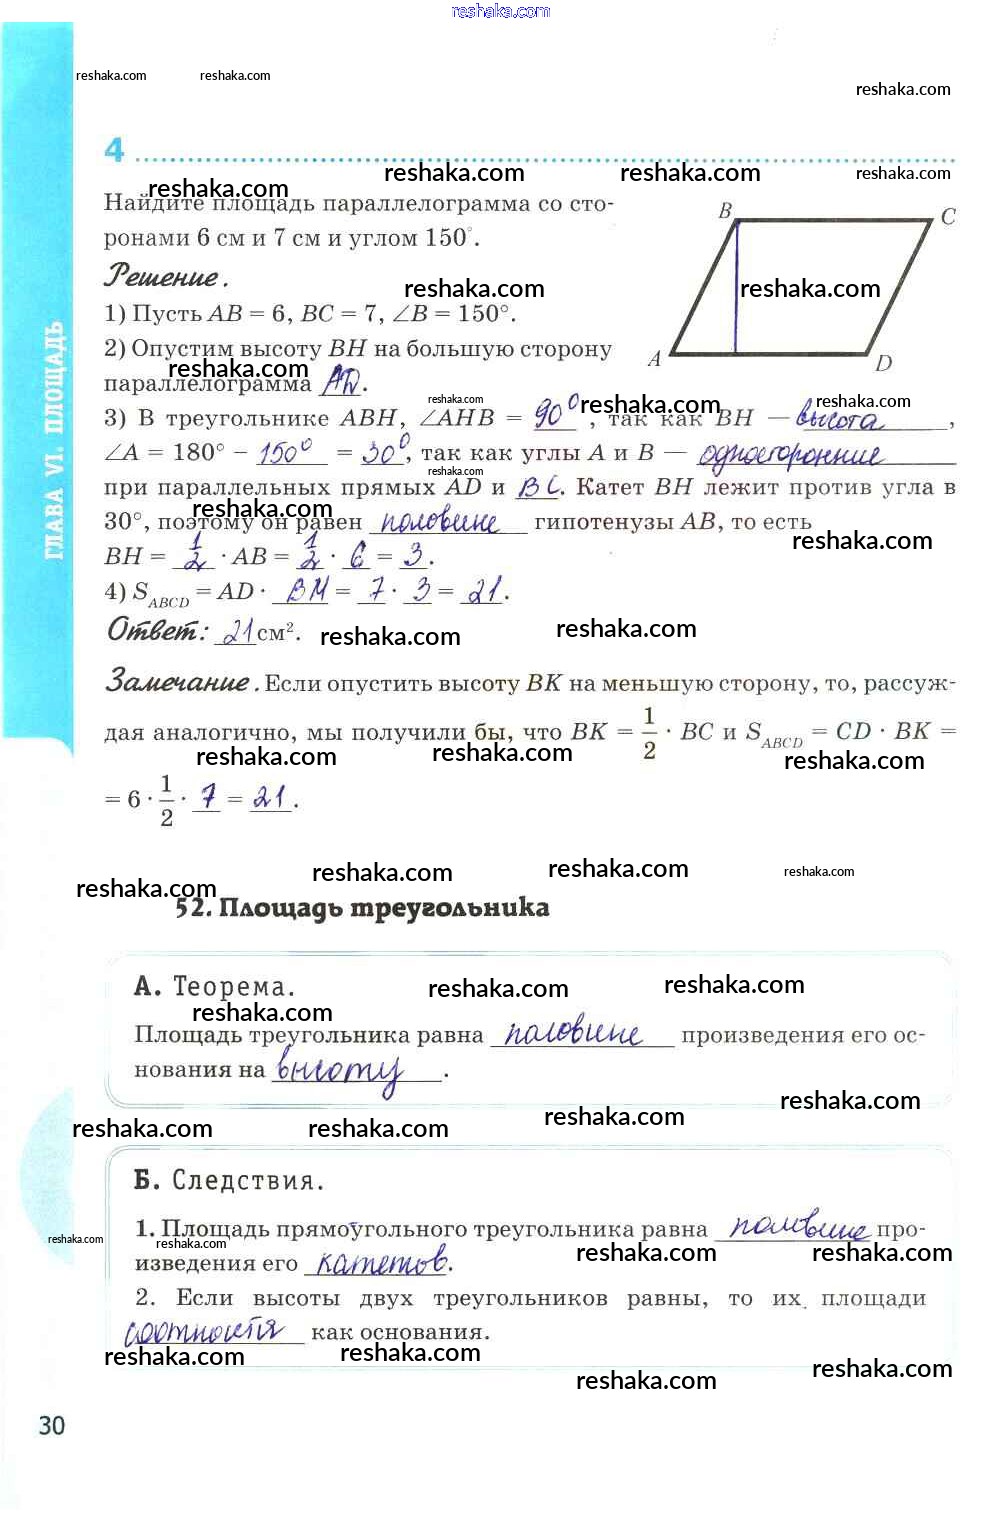 reshaka.com
reshaka.com reshaka.com
reshaka.com
4
reshaka.com reshaka.com reshaka.com
reshaka.com
Найдите площадь параллелограмма со сто-
ронами 6 см и 7 см и углом 150°.
B C
A D
Решение.
reshaka.com reshaka.com
1) Пусть AB = 6, BC = 7, ∠B = 150°.
2) Опустим высоту BH на большую сторону
reshaka.com
параллелограмма AD.
reshaka.com reshaka.com reshaka.com
3) В треугольнике ABH, ∠AHB = 90°, так как BH — высота,
∠A = 180° – 150° = 30°, так как углы A и B — односторонние
reshaka.com
при параллельных прямых AD и BC. Катет BH лежит против угла в
reshaka.com
30°, поэтому он равен половине гипотенузы AB, то есть
reshaka.com
BH = 1/2 · AB = 1/2 · 6 = 3.
4) S ABCD = AD · BH = 7 · 3 = 21.
Ответ: 21 см².
reshaka.com reshaka.com
Замечание. Если опустить высоту BK на меньшую сторону, то, рассуж-
дая аналогично, мы получили бы, что BK = 1/2 · BC и S ABCD = CD · BK =
reshaka.com reshaka.com reshaka.com
= 6 · 1/2 · 7 = 21.
reshaka.com reshaka.com reshaka.com
reshaka.com
52. Площадь треугольника
А. Теорема.
reshaka.com reshaka.com
reshaka.com
Площадь треугольника равна половине произведения его ос-
нования на высоту.
reshaka.com reshaka.com reshaka.com reshaka.com
Б. Следствия.
1. Площадь прямоугольного треугольника равна половине про-
reshaka.com reshaka.com reshaka.com reshaka.com
изведения его катетов.
2. Если высоты двух треугольников равны, то их площади
соотносятся как основания.
reshaka.com reshaka.com reshaka.com
reshaka.com
30
reshaka.com
ГЛАВА VI. ПЛОЩАДЬ